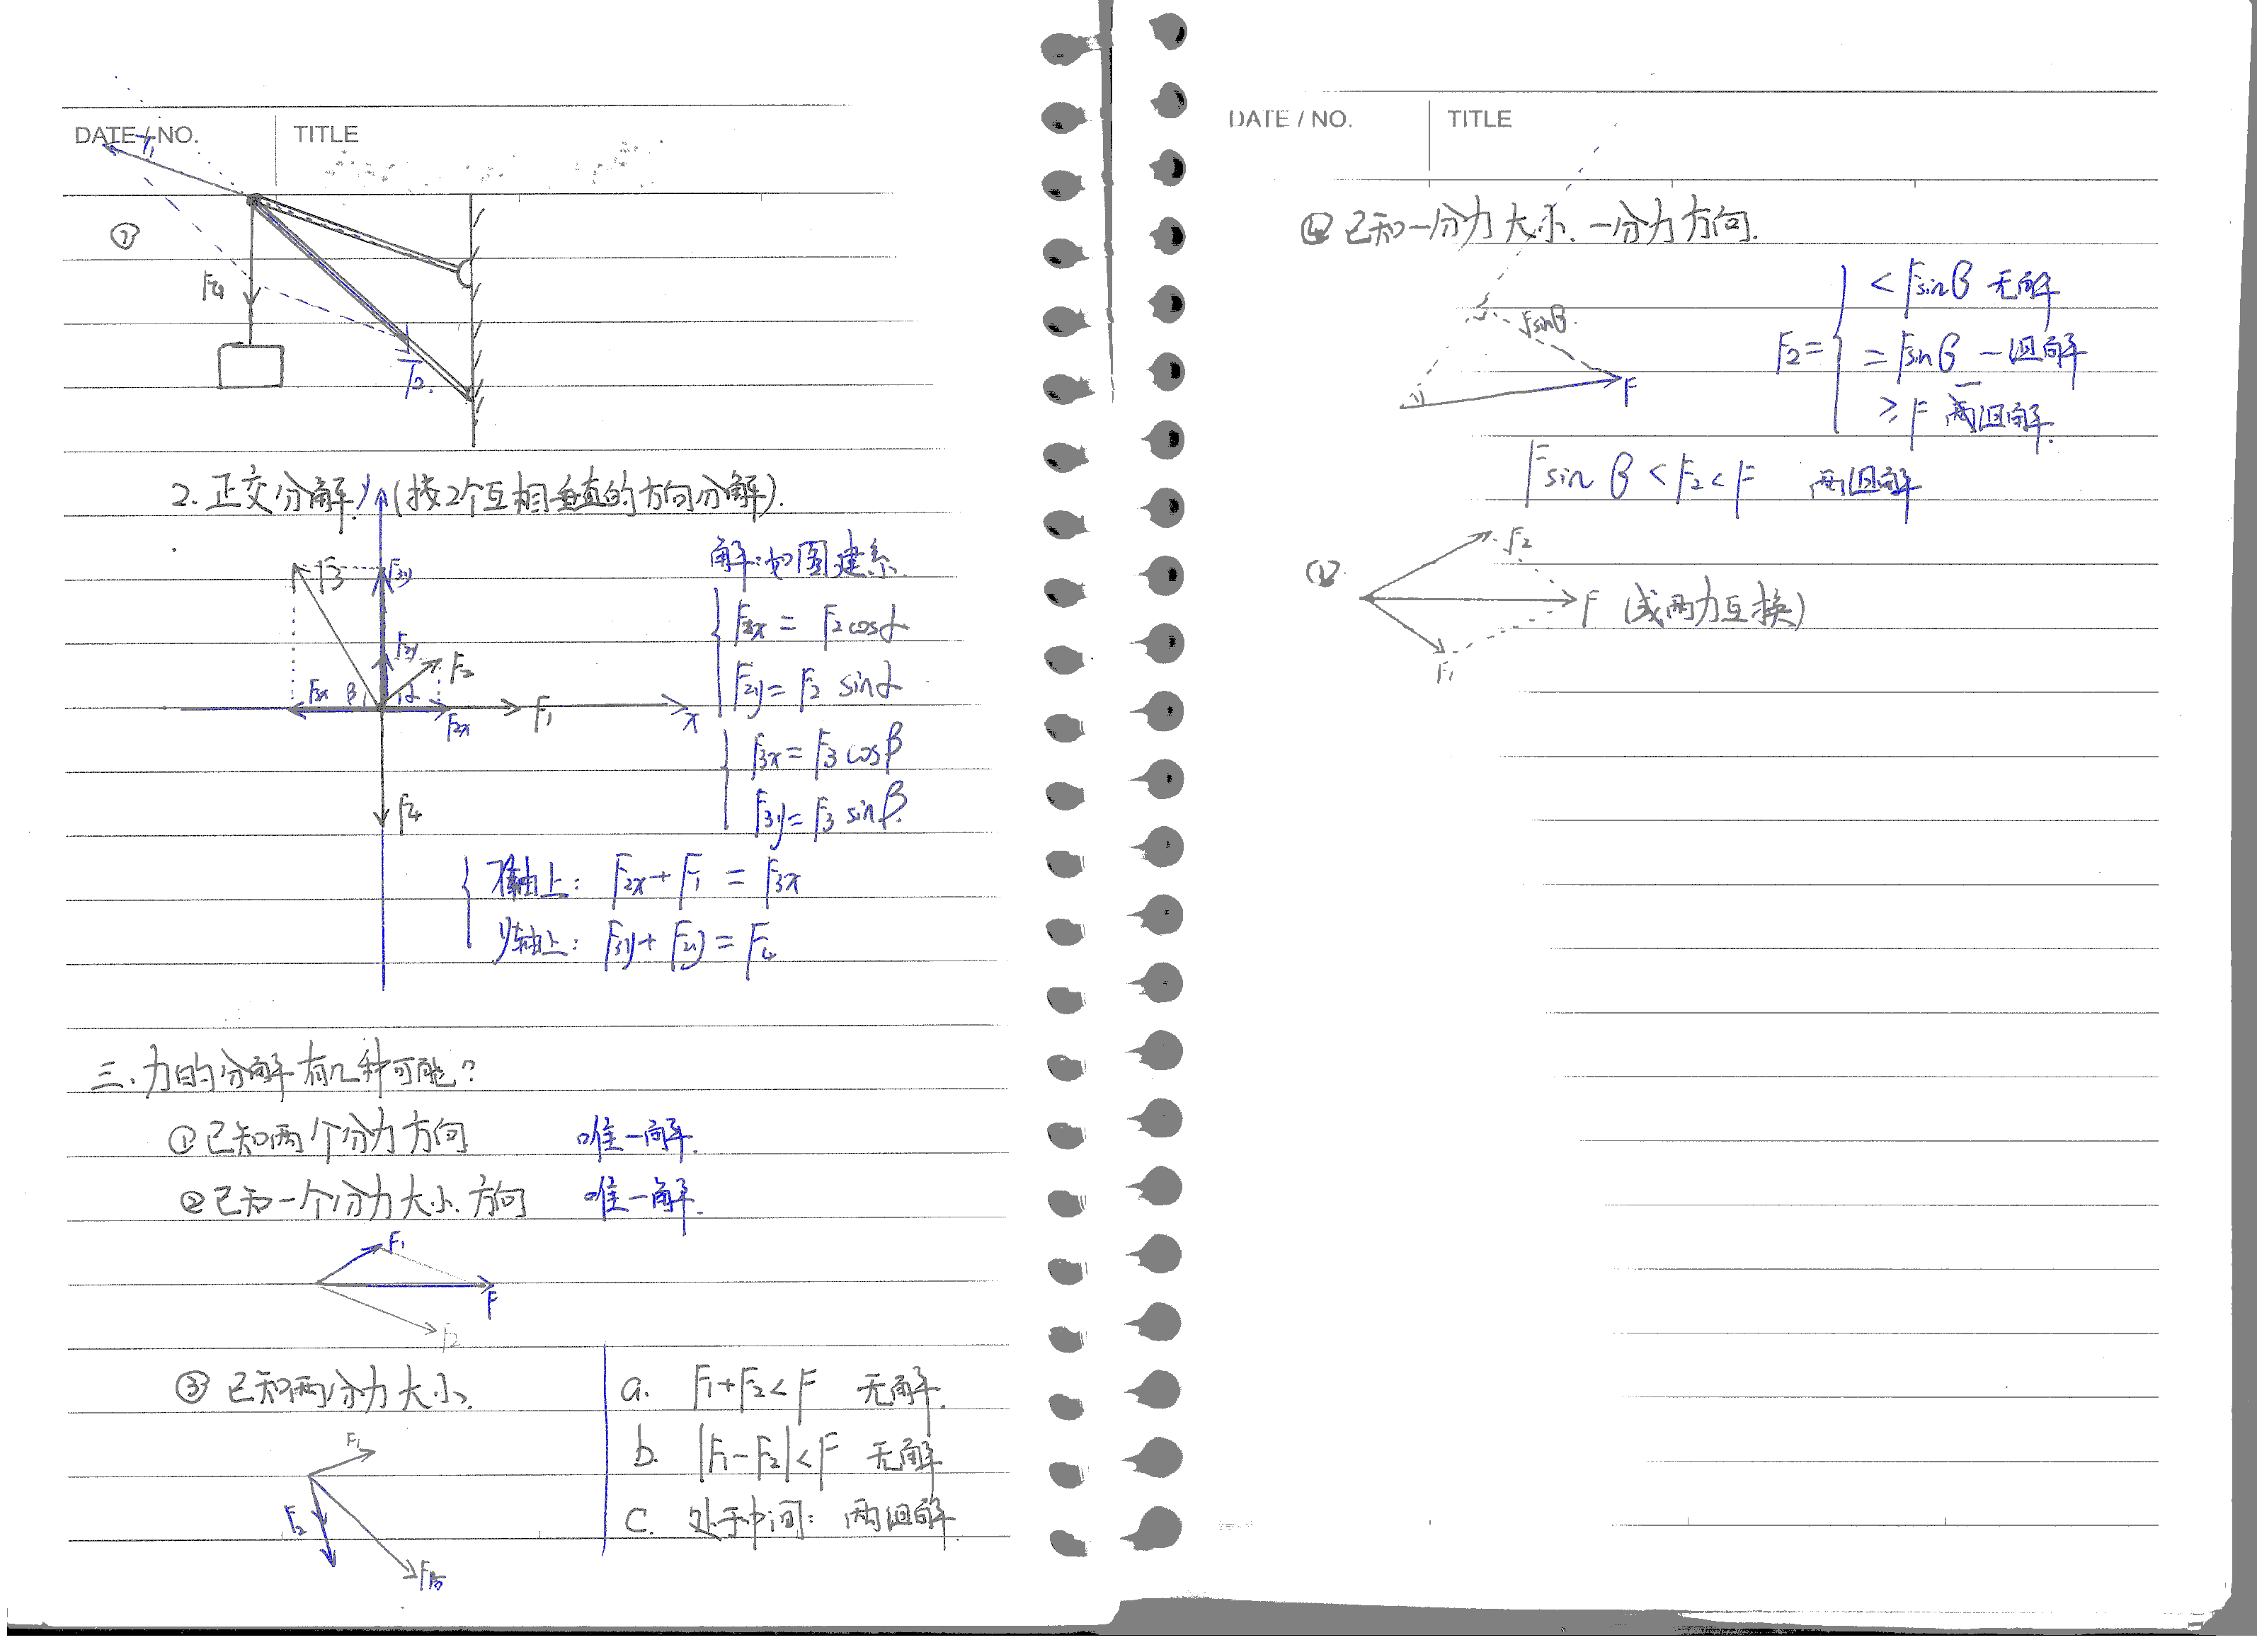 DATE / NO.
TITLE
F₁
①
F₄
F₂
2. 正交分解 (按2个互相垂直的方向分解).
y
F₃
F₃y
F₂y
F₂
F₃x
β
α
F₂x
F₁
x
F₄
解:如图建系.
F₂x = F₂cosα
F₂y = F₂ sinα
F₃x = F₃ cosβ
F₃y = F₃ sinβ.
x轴上: F₂x + F₁ = F₃x
y轴上: F₃y + F₂y = F₄
三.力的分解有几种可能?
①已知两个分力方向 唯一解.
②已知一个分力大小.方向 唯一解.
F₁
F
F₂
③ 已知两分力大小.
F₁
F₂
a. F₁+F₂<F 无解.
b. |F₁-F₂|<F 无解
c. 处于中间: 两组解
DATE / NO.
TITLE
④已知一分力大小、一分力方向.
Fsinβ.
F
F₂=
< Fsinβ 无解
= Fsinβ 一组解
≥ F 两组解.
Fsinβ<F₂<F 两组解
F₂
F (或两力互换)
F₁